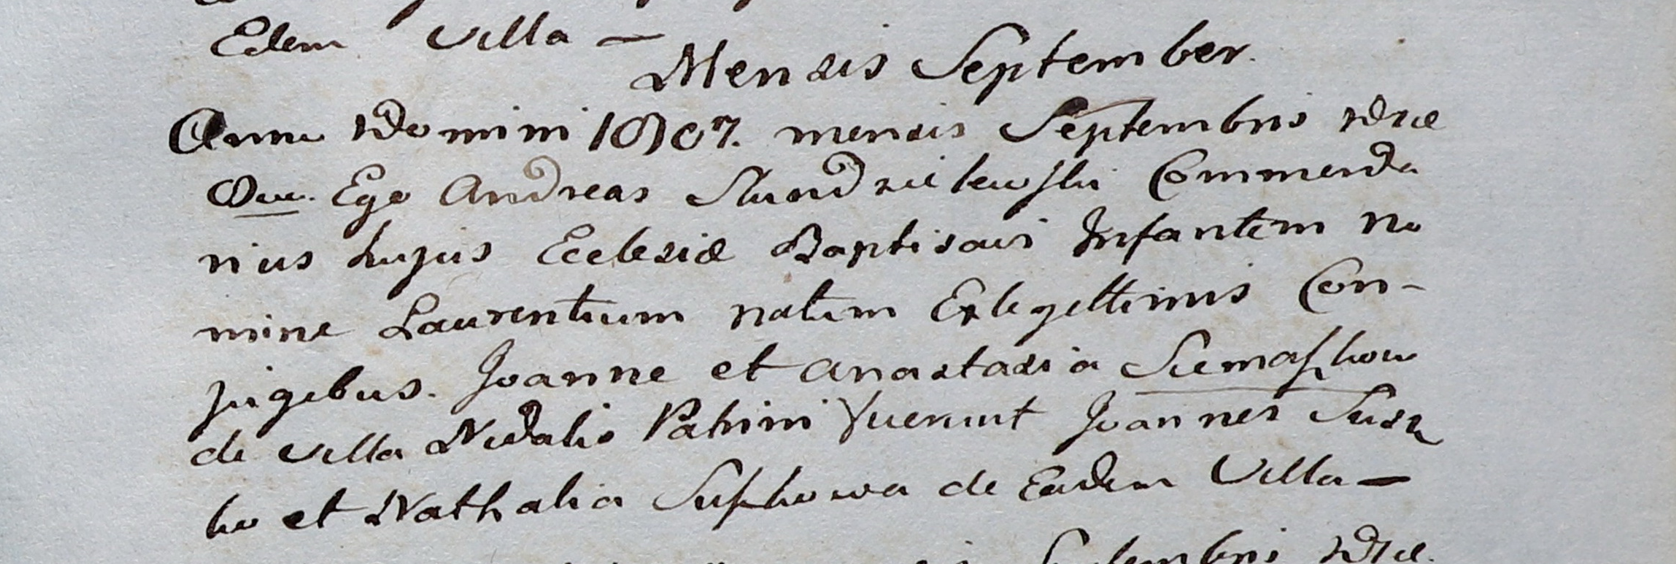 Edem Villa —
Mensis September.
Anno Domini 1807. mensis Septembris die
Ego Andreas Commenda
rius hujus Eclesiæ Baptisavi Infantem no
mine Laurentium natum Ex legittimis Con-
jugebus. Joanne et Anastasia
de Villa Patrini Fuerunt Joannes Susz
ko et Nathalia de Eadem Villa —
die